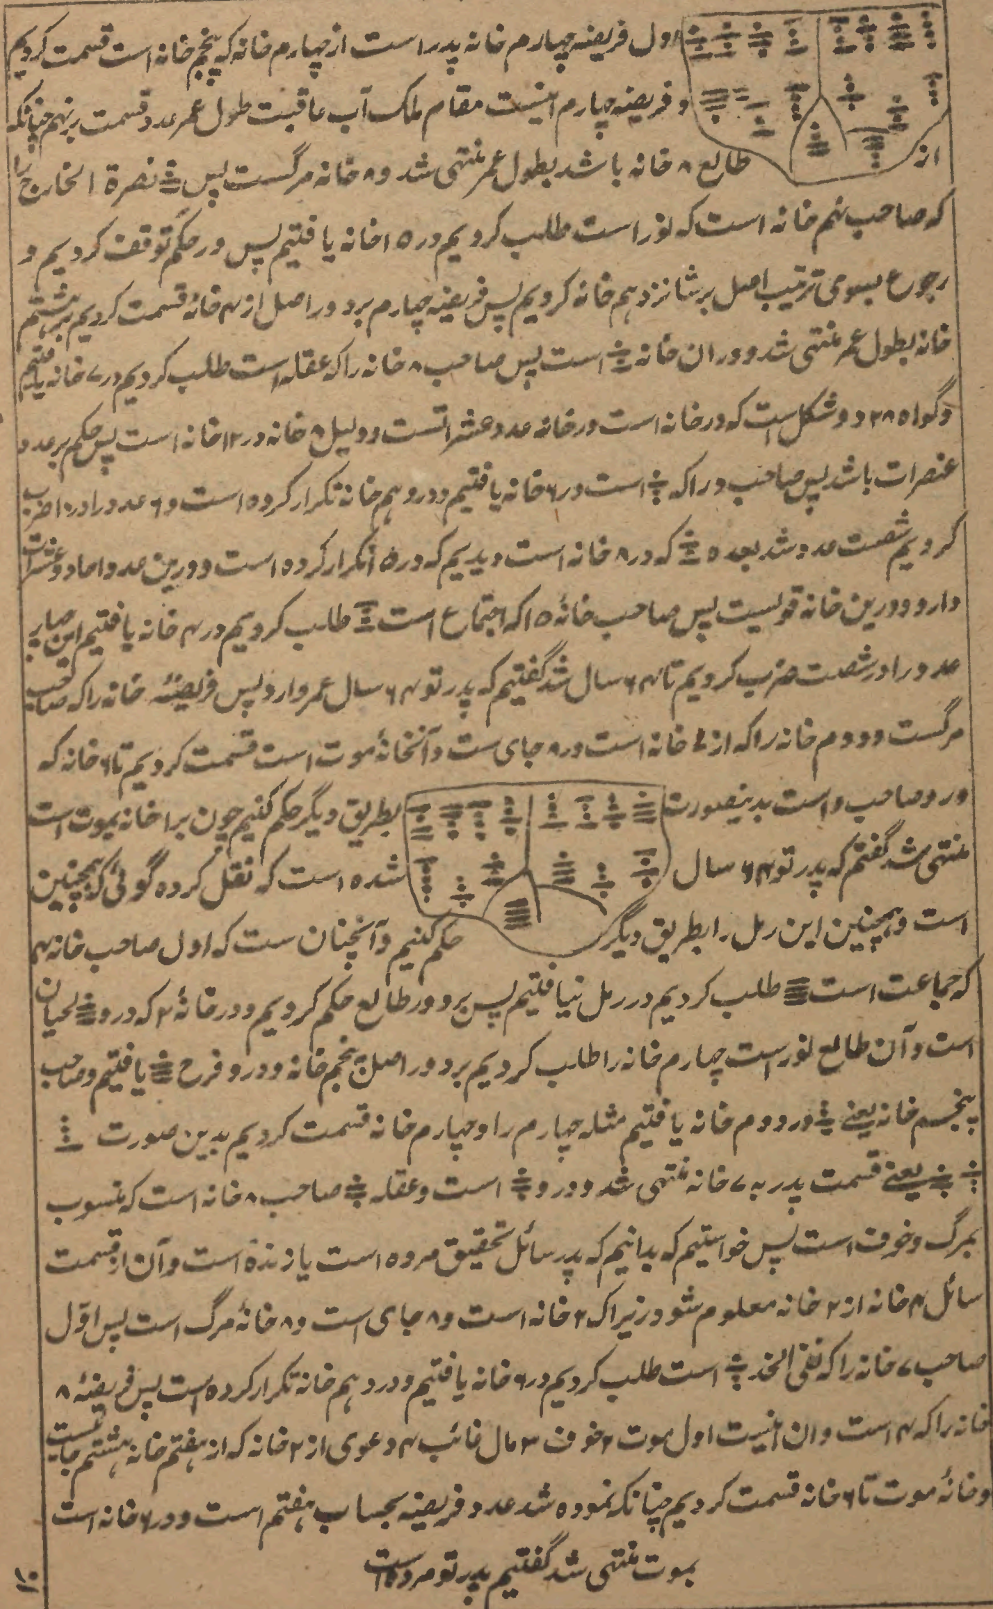 اول فریضه چهارم خانه پدر راست از چهارم خانه که پنجم خانه است قسمت کردیم
و فریضه چهارم اینست مقام ملک آب عاقبت طول عمر عدد قسمت بر نهم چنانکه
از طالع ۸ خانه باشد بطول عمر منتهی شد و ۸ خانه مرگست پس نصرة الخارج را
که صاحب نهم خانه است که لوز است طلب کردیم در ۱۵ خانه یافتیم پس در حکم توقف کردیم و
رجوع بسوی ترتیب اصل بر شانزدهم خانه کردیم پس فریضه چهارم برد در اصل از ۴ خانه قسمت کردیم بر هشتم
خانه بطول عمر منتهی شد و در ان خانه است پس صاحب ۸ خانه را که عقله است طلب کردیم در ۷ خانه یافتیم
و گواه ۲۸ دو شکل است که در خانه است در خانه عدد عشراتست و دلیل ۸ خانه در ۱۲ خانه است پس حکم بر عدد
عنصرات باشد پس صاحب د را که است در ۶ خانه یافتیم و در دهم خانه تکرار کرده است و ۶ عدد را در ۱۰ ضرب
کردیم شصت عدد شد بعده که در ۸ خانه است دیدیم که در ۱۵ تکرار کرده است و درین عدد احاد و عشرات
دارد و درین خانه قویست پس صاحب خانهٔ ۱۵ که اجتماع است طلب کردیم در ۴ خانه یافتیم این چهار
عدد را در شصت ضرب کردیم تا ۶۴ سال شد گفتیم که پدر تو ۶۴ سال عمر دارد پس فریضهٔ خانه را که صاحب
مرگست و دوم خانه را که از ۷ خانه است در ۸ جای ست و آنخانهٔ موت است قسمت کردیم تا ۶ خانه که
در و صاحب و است بدینصورت بطریق دیگر حکم کنیم چون برا خانه بموت است
منتهی شد گفتم که پدر تو ۶۴ سال شده است که نقل کرده گوئی که همچنین
است و همچنین این رمل را بطریق دیگر حکم کنیم و آنچنان ست که اول صاحب خانه ۴
که جماعت است طلب کردیم در رمل نیافتیم پس برد در طالع حکم کردیم و در خانهٔ ۲ که در و لحیان
است و آن طالع لوز ست چهارم خانه را طلب کردیم برد در اصل پنجم خانه و در و فرح یافتیم و صاحب
پنجم خانه یعنے در دوم خانه یافتیم مثله چهارم را و چهارم خانه قسمت کردیم بدین صورت
یعنے قسمت پدر به ۷ خانه منتهی شد و در و است و عقله صاحب ۸ خانه است که منسوب
بمرگ و خوف است پس خواستیم که بدانیم که پدر سائل تحقیق مرده است یا زنده است و آن از قسمت
سائل ۴ خانه از ۲ خانه معلوم شود زیرا که ۲ خانه است و ۸ جای است و ۸ خانهٔ مرگ است پس اول
صاحب ۷ خانه را که نقی الخد است طلب کردیم در ۶ خانه یافتیم و در دهم خانه تکرار کرده است پس فریضهٔ ۸
خانه را که ۴ است و ان اینست اول موت ۲ خوف ۳ مال غائب ۴ دعوی از ۲ خانه که از هفتم خانه هشتم جایست
و خانهٔ موت تا ۶ خانه قسمت کردیم چنانکه نموده شد عدد فریضه بحساب هفتم است و در ۶ خانه است
بموت منتهی شد گفتیم پدر تو مرده است